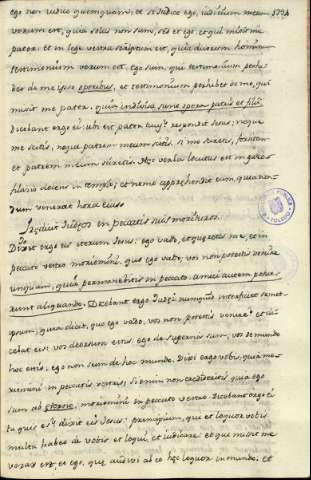 ego non iudico quemquam, et si iudico ego, iudicium meum
verum est, quia solus non sum, sed et ego, et qui misit me
pater. et in lege vestra scriptum est, quia duorum hominum
testimonium verum est. ego sum, qui testimonium perhi
beo de me ipso et testimonium perhibet de me, qui
misit me pater.
Dicebant ergo ei ubi est pater respondit Jesus: neque
me scitis, neque patrem meum scitis, si me sciretis,
et patrem meum sciretis. Haec verba locutus est in gazo
filacio docens in templo, et nemo apprehendit eum, quia non
dum venerat hora eius
in peccatis suis morituros.
Dixit ergo eis iterum Jesus: ego vado, et queretis me, et in
peccato vestro moriemini, quo ego vado, vos non potestis venire
quia permanebitis in peccato
Dicebant ergo Judei numquid interficiet semet
ipsum, quia dicit, quo ego vado, vos non potestis venire? et di
cebat eis: vos deorsum estis ego de supernis sum, vos de mundo
hoc estis, ego non sum de hoc mundo. Dixi ergo vobis, quia mo
riemini in peccatis vestris, si enim non credideritis quia ego
sum moriemini in peccato vestro. Dicebant ergo ei
tu quis es? dixit eis Jesus: principium, qui et loquor vobis
multa habeo de vobis et loqui, et iudicare. et qui misit me
verax est, et ego, que audivi ab eo hec loquor in mundo. et